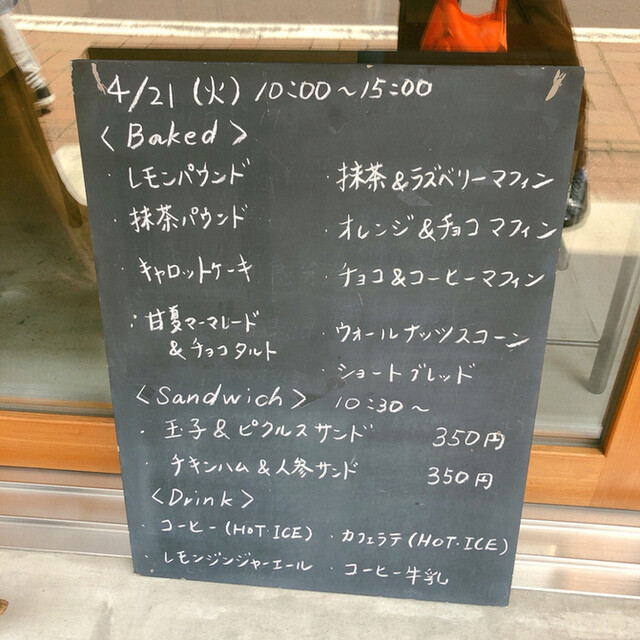 4/21 (火) 10:00～15:00
<Baked>
・レモンパウンド
・抹茶パウンド
・キャロットケーキ
・甘夏マーマレード
&チョコタルト
・抹茶&ラズベリーマフィン
・オレンジ&チョコマフィン
・チョコ&コーヒーマフィン
・ウォールナッツスコーン
・ショートブレッド
<Sandwich> 10:30～
・玉子&ピクルスサンド 350円
・チキンハム&人参サンド 350円
<Drink>
・コーヒー(HOT・ICE) ・カフェラテ(HOT・ICE)
・レモンジンジャーエール ・コーヒー牛乳